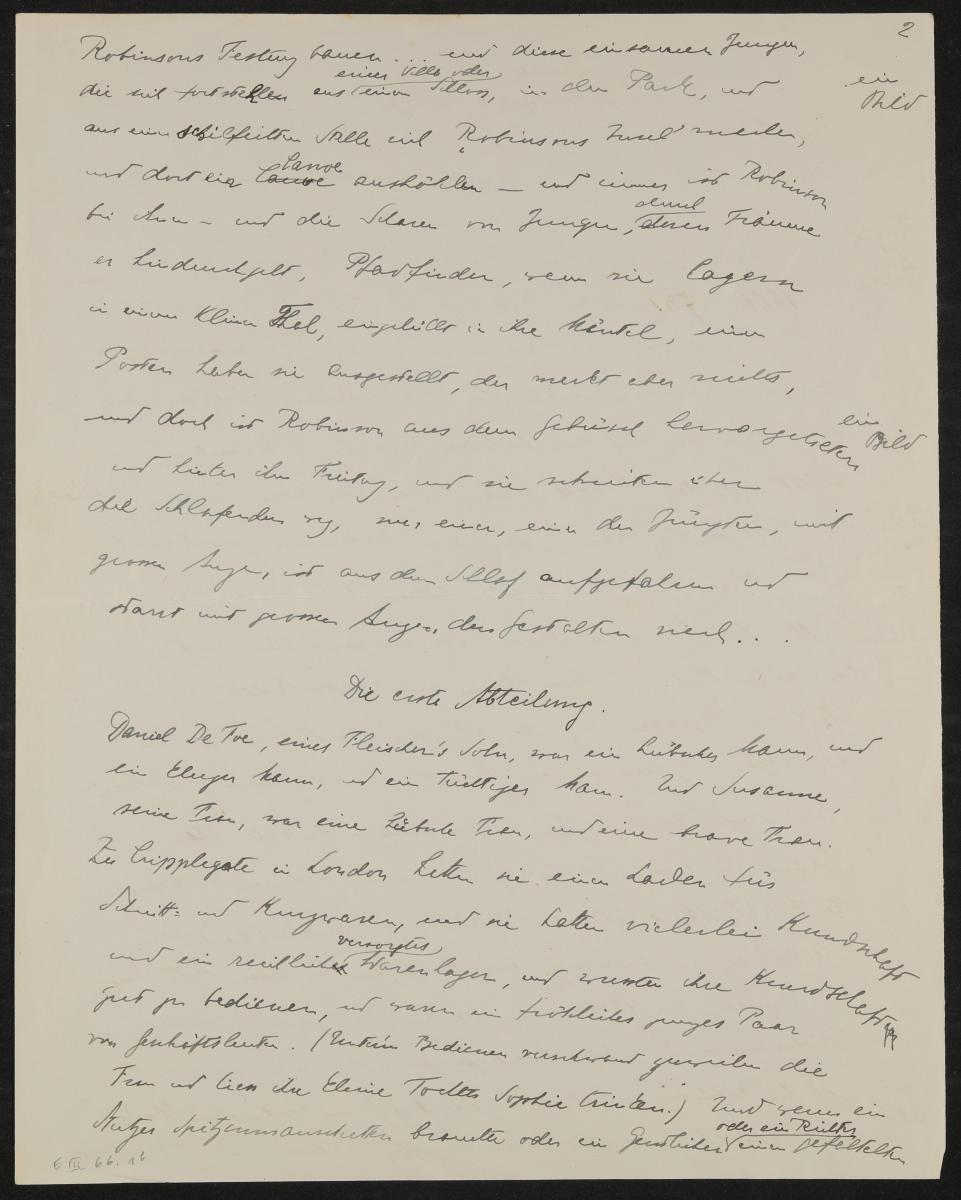 2
Robinsons Festung bauen ... und diese einsamen Jungen,
die sich fortstehlen aus einem Schloss, in den Park, und
einer Villa oder
ein
Bild
aus einer schilfichten Stelle sich "Robinsons Insel" machen,
und dort ein Canoe aushöhlen — und immer ist Robinson
Canoe
bei ihnen — und die Scharen von Jungen, deren Träume
er hindurchgeht, Pfadfinder, wenn sie lagern
in einem kleinen Thal, eingehüllt in ihre Mäntel, einen
Posten haben sie ausgestellt, der merkt aber nichts,
und doch ist Robinson aus dem Gebüsch hervorgetreten
ein
Bild
und hinter ihm Freitag, und sie schreiten über
die Schlafenden weg, nur einer, einer der Jüngsten, mit
grossen Augen, ist aus dem Schlaf aufgefahren und
starrt mit grossen Augen den Gestalten nach...
Die erste Abteilung.
Daniel De Foe, eines Fleischer's Sohn, war ein hübscher Mann, und
ein kluger Mann, und ein tüchtiger Mann. Und Susanne,
seine Frau, war eine hübsche Frau, und eine brave Frau.
Zu Cripplegate in London hatten sie einen Laden für
Schnitt- und Kurzwaren, und sie hatten vielerlei Kundschaft
und ein reichliches Warenlager, und wussten ihre Kundschaften
versorgtes
gut zu bedienen, und waren ein fröhliches junges Paar
von Geschäftsleuten. (Unterm Bedienen verschwand zuweilen die
Frau und liess ihre kleine Tochter Sophie trinken.) Und wenn ein
Stutzer Spitzenmanschetten brauchte oder ein Geistlicher einen gefältelten
oder ein Richter
E III 66. 16